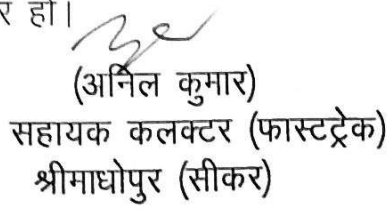 र हो।
(अनिल कुमार)
सहायक कलक्टर (फास्टट्रेक)
श्रीमाधोपुर (सीकर)